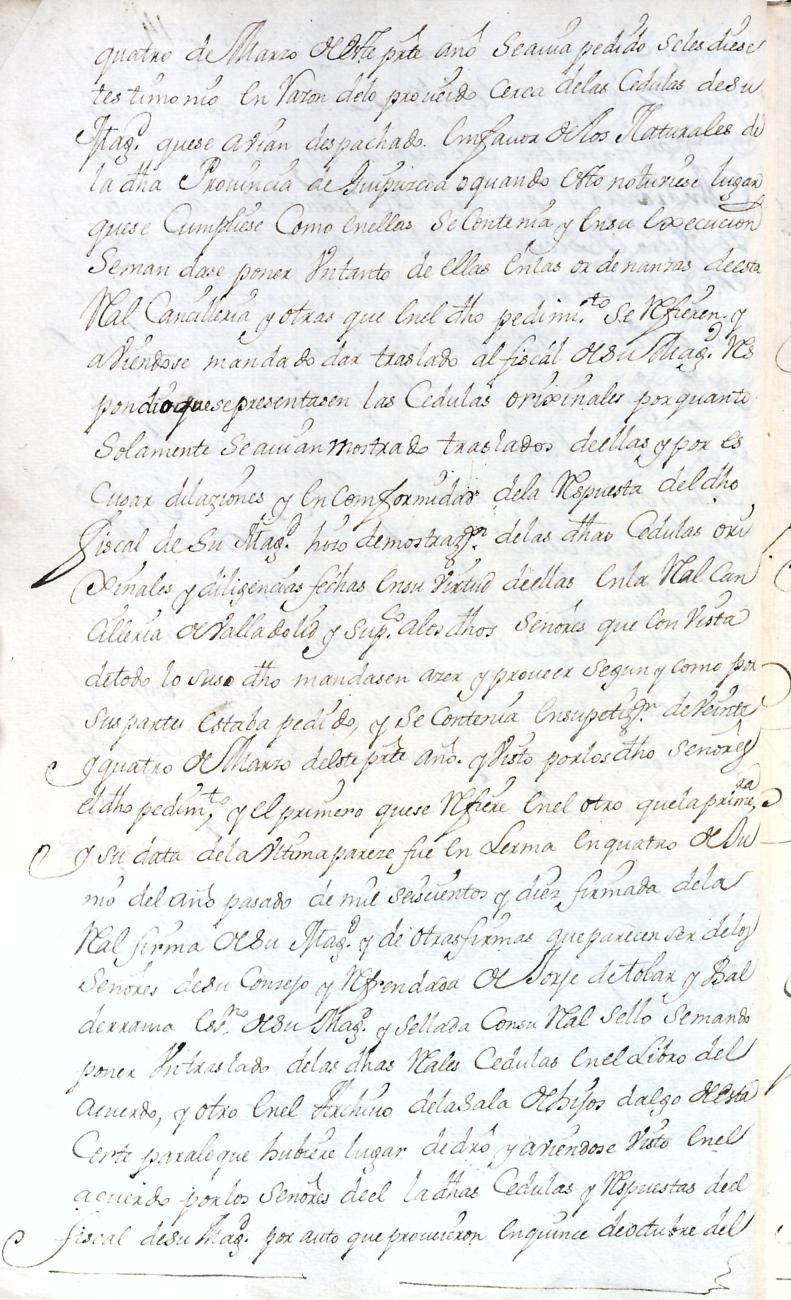 quatro de Marzo de este prẽte anõ Seauia pedido seles diese
testimonio En Razon delo proueido cerca delas Cedulas desu
Magᵈ. quese avian despachado. Emfauor de los Naturales de
la dha Provincia de Guipuzcoa oquando esto notuviese lugar
quese Cumpliese Como Enellas Se Contenia y Ensu Execucion
Seman dase poner Vntanto de ellas Enlas ordenanzas deesta
Real Cancilleria y otras que Enel dho pedimᵗᵒ. Se Refieren. y
aviendose mandado dar traslado al fiscal de su Magᵈ. Res
pondio quese presentasen las Cedulas orixinales porquanto
Solamente Seauian mostrado traslados deellas y por es
Cusar dilaziones y En Comformidad dela Respuesta del dho
Fiscal de Su Magᵈ. hizo demostrazⁿ. delas dhas Cedulas ori
xinales y diligencias fechas Ensu Virtud deellas Enla Real Can
cilleria de Valladolid y supᶜᵒ. alos dhos Señores que con Vista
detodo lo suso dho mandasen azer y proveer segun y como por
sus partes Estaba pedido, y Se Contenia Ensupetizⁿ. de Veinte
y quatro de Marzo deleste prẽte año. y Visto porlos dho Señores
el dho pedimᵗᵒ, y el primero quese Refiere Enel otro quelaprimeʳᵃ,
y su data dela Vltima pareze fue En Lerma Enquatro de Ju
nio del año pasado de mil seiscientos y diez firmada dela
Real firma de su Magᵈ. y de otras firmas queparecen ser delos
Señores desu Consejo y Refrendada de Jorje detobar y Bal
derrama Essⁿᵒ. de su Magᵈ. y sellada Consu Real Sello Semando
poner Vntraslado delas dhas Reales Cedulas Enel Libro del
acuerdo, y otro Enel Archivo dela Sala de hijos dalgo de esta
Corte paraloque hubiere lugar dedrõ y aviendose Visto Enel
acuerdo porlos Señores deel la dhas Cedulas y Respuestas deel
fiscal desu Magᵈ. por auto que proueieron Enquince deoctubre del